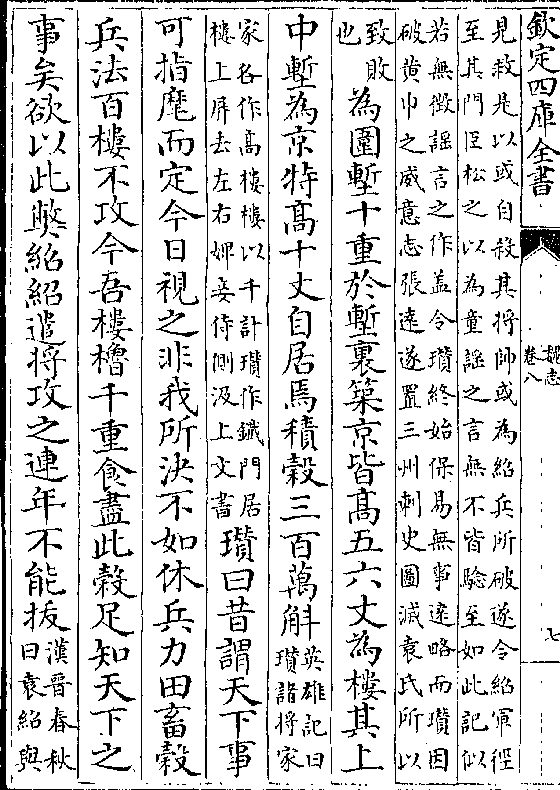 欽定四庫全書
魏志
卷八
七
見救是以或自殺其將帥或為紹兵所破遂令紹軍徑
至其門臣松之以為童謠之言無不皆驗至如此記似
若無徵謠言之作盖令瓚終始保易無事逺略而瓚因
破黄巾之威意志張逺遂置三州刺史圖滅袁氏所以
致敗
也
為圍塹十重於塹裏築京皆髙五六丈為樓其上
中塹為京特髙十丈自居焉積榖三百萬斛
英雄記曰
瓚諸將家
家各作髙樓樓以千計瓚作鐵門居
樓上屏去左右婢妾侍側汲上文書
瓚曰昔謂天下事
可指麾而定今日視之非我所決不如休兵力田畜榖
兵法百樓不攻今吾樓櫓千重食盡此榖足知天下之
事矣欲以此獘紹紹遣將攻之連年不能拔
漢晉春秋
曰袁紹與